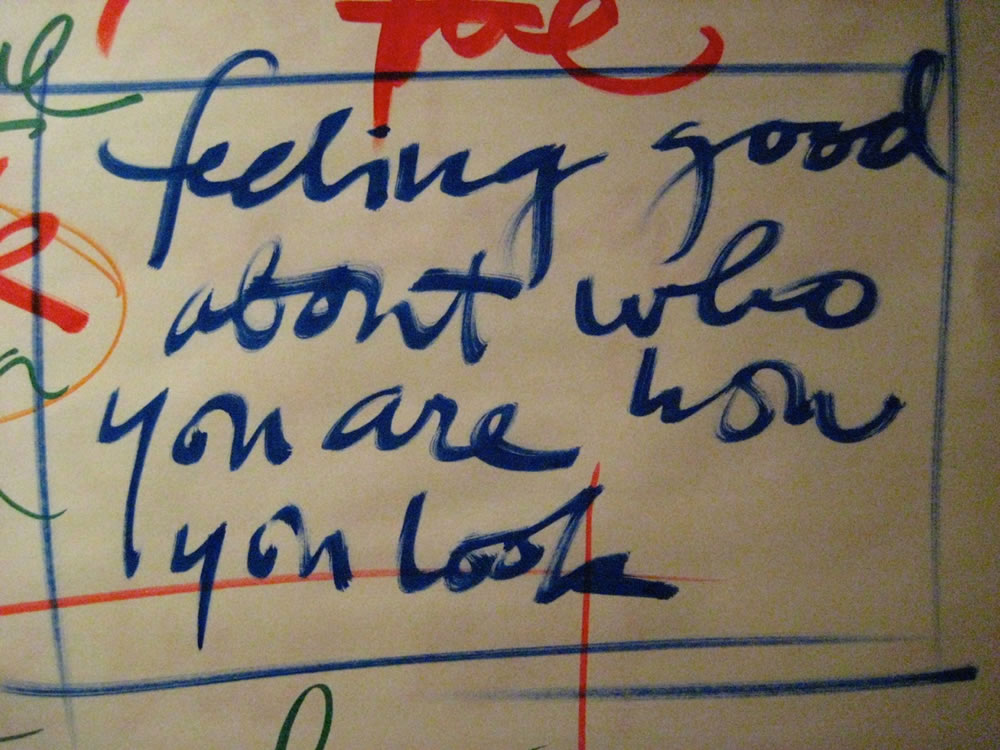 feeling good
about who
you are how
you look